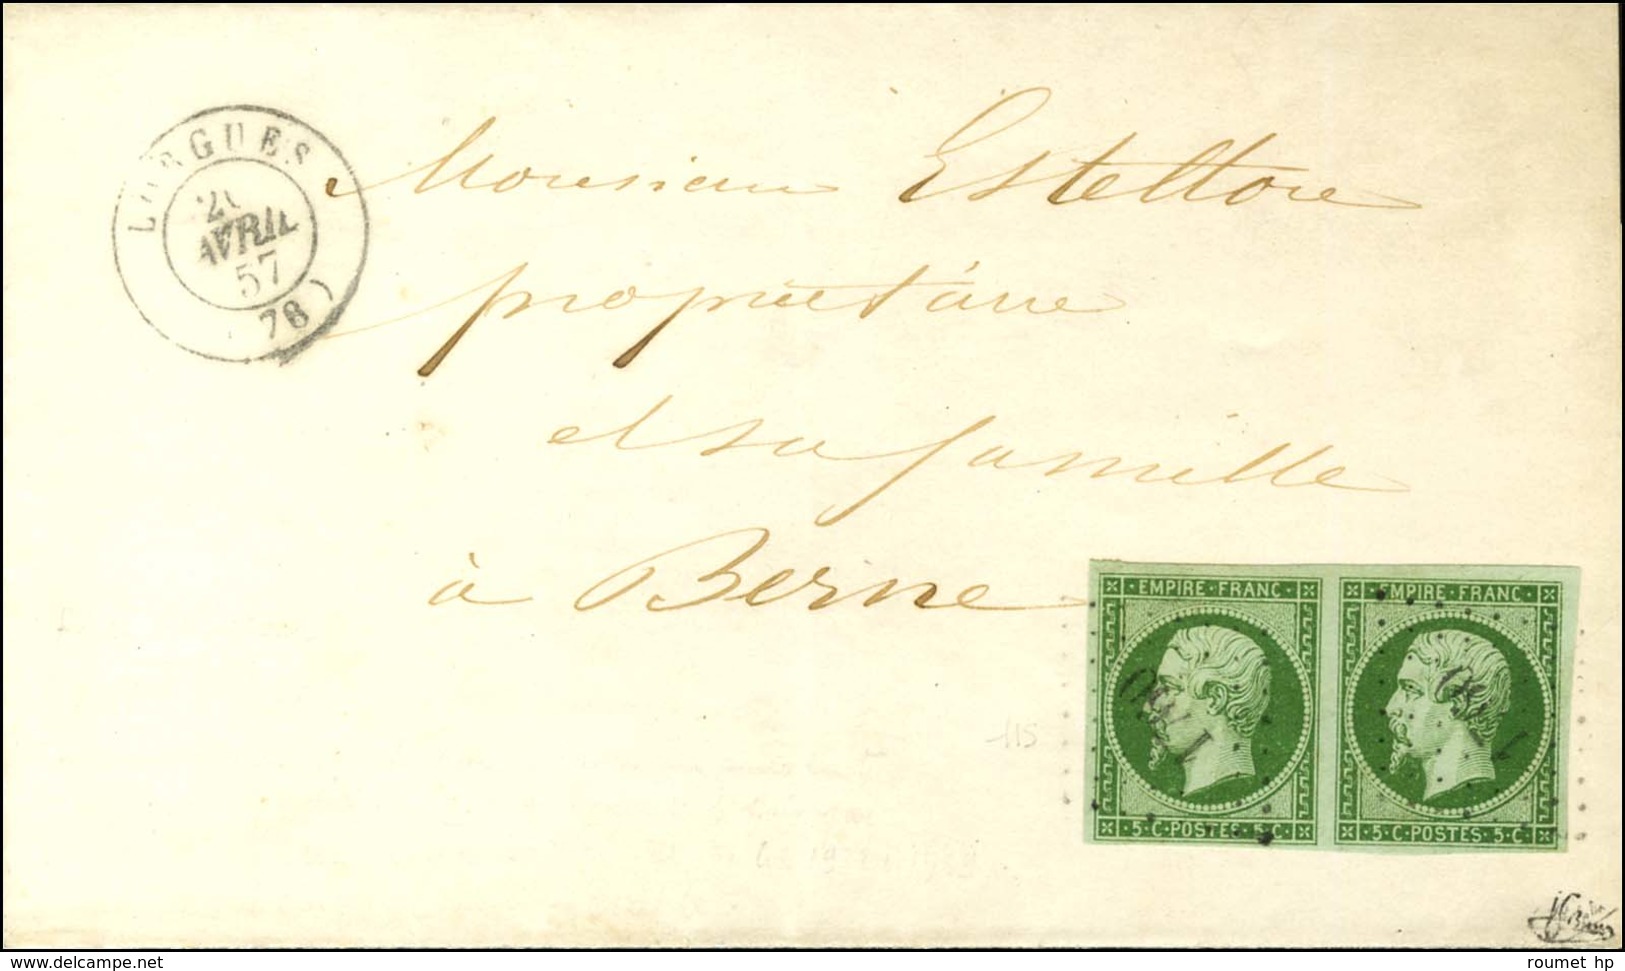 LORGUES
AVRIL
57
(78)
Monsieur Estellon
propriétaire
et sa famille
à Berne
EMPIRE · FRANC EMPIRE · FRANC
1780 1780
5 · C · POSTES · 5 · C 5 · C · POSTES · 5 · C
115
www.delcampe.net roumet hp